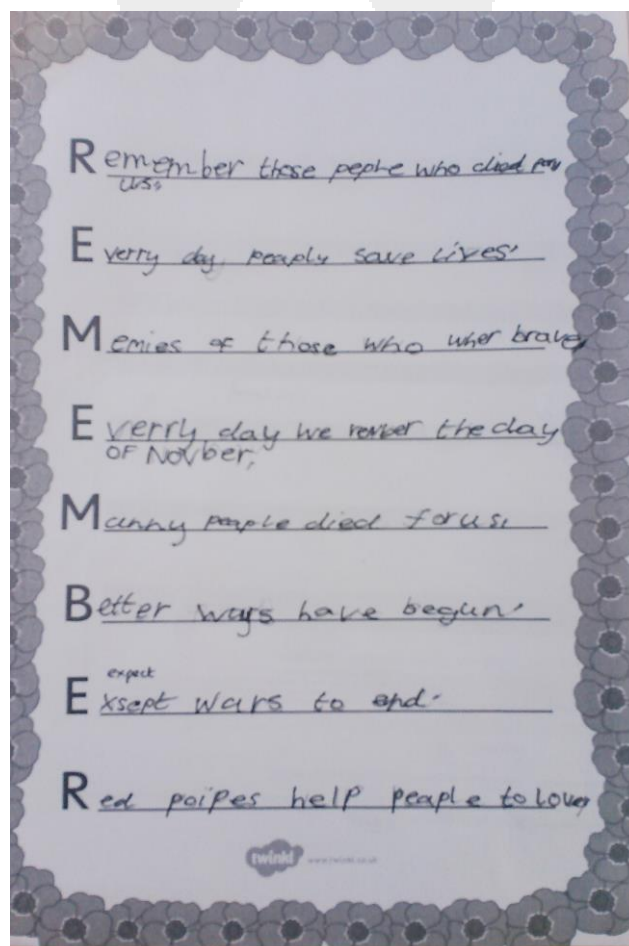 Remember those pephe who died for
us.
Everry day, peaply save lives'
Memies of those who wher brave,
Everry day we rember the day
OF Novber,
Manny people died for us,
Better ways have begun'
expect
Exsept wars to end.
Red poipes help peaple to love,
twinkl www.twinkl.co.uk